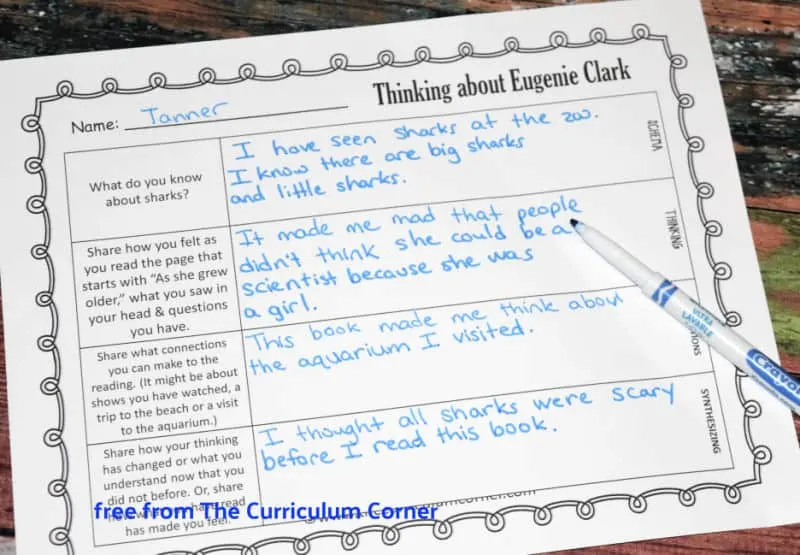 Thinking about Eugenie Clark
Name: Tanner
What do you know
about sharks?
I have seen sharks at the zoo.
I know there are big sharks
and little sharks.
SCHEMA
Share how you felt as
you read the page that
starts with “As she grew
older,” what you saw in
your head & questions
you have.
It made me mad that people
didn't think she could be a
scientist because she was
a girl.
THINKING
Share what connections
you can make to the
reading. (It might be about
shows you have watched, a
trip to the beach or a visit
to the aquarium.)
This book made me think about
the aquarium I visited.
Share how your thinking
has changed or what you
understand now that you
did not before. Or, share
read
has made you feel.
I thought all sharks were scary
before I read this book.
SYNTHESIZING
ULTRA
WASHABLE
Crayola
free from The Curriculum Corner